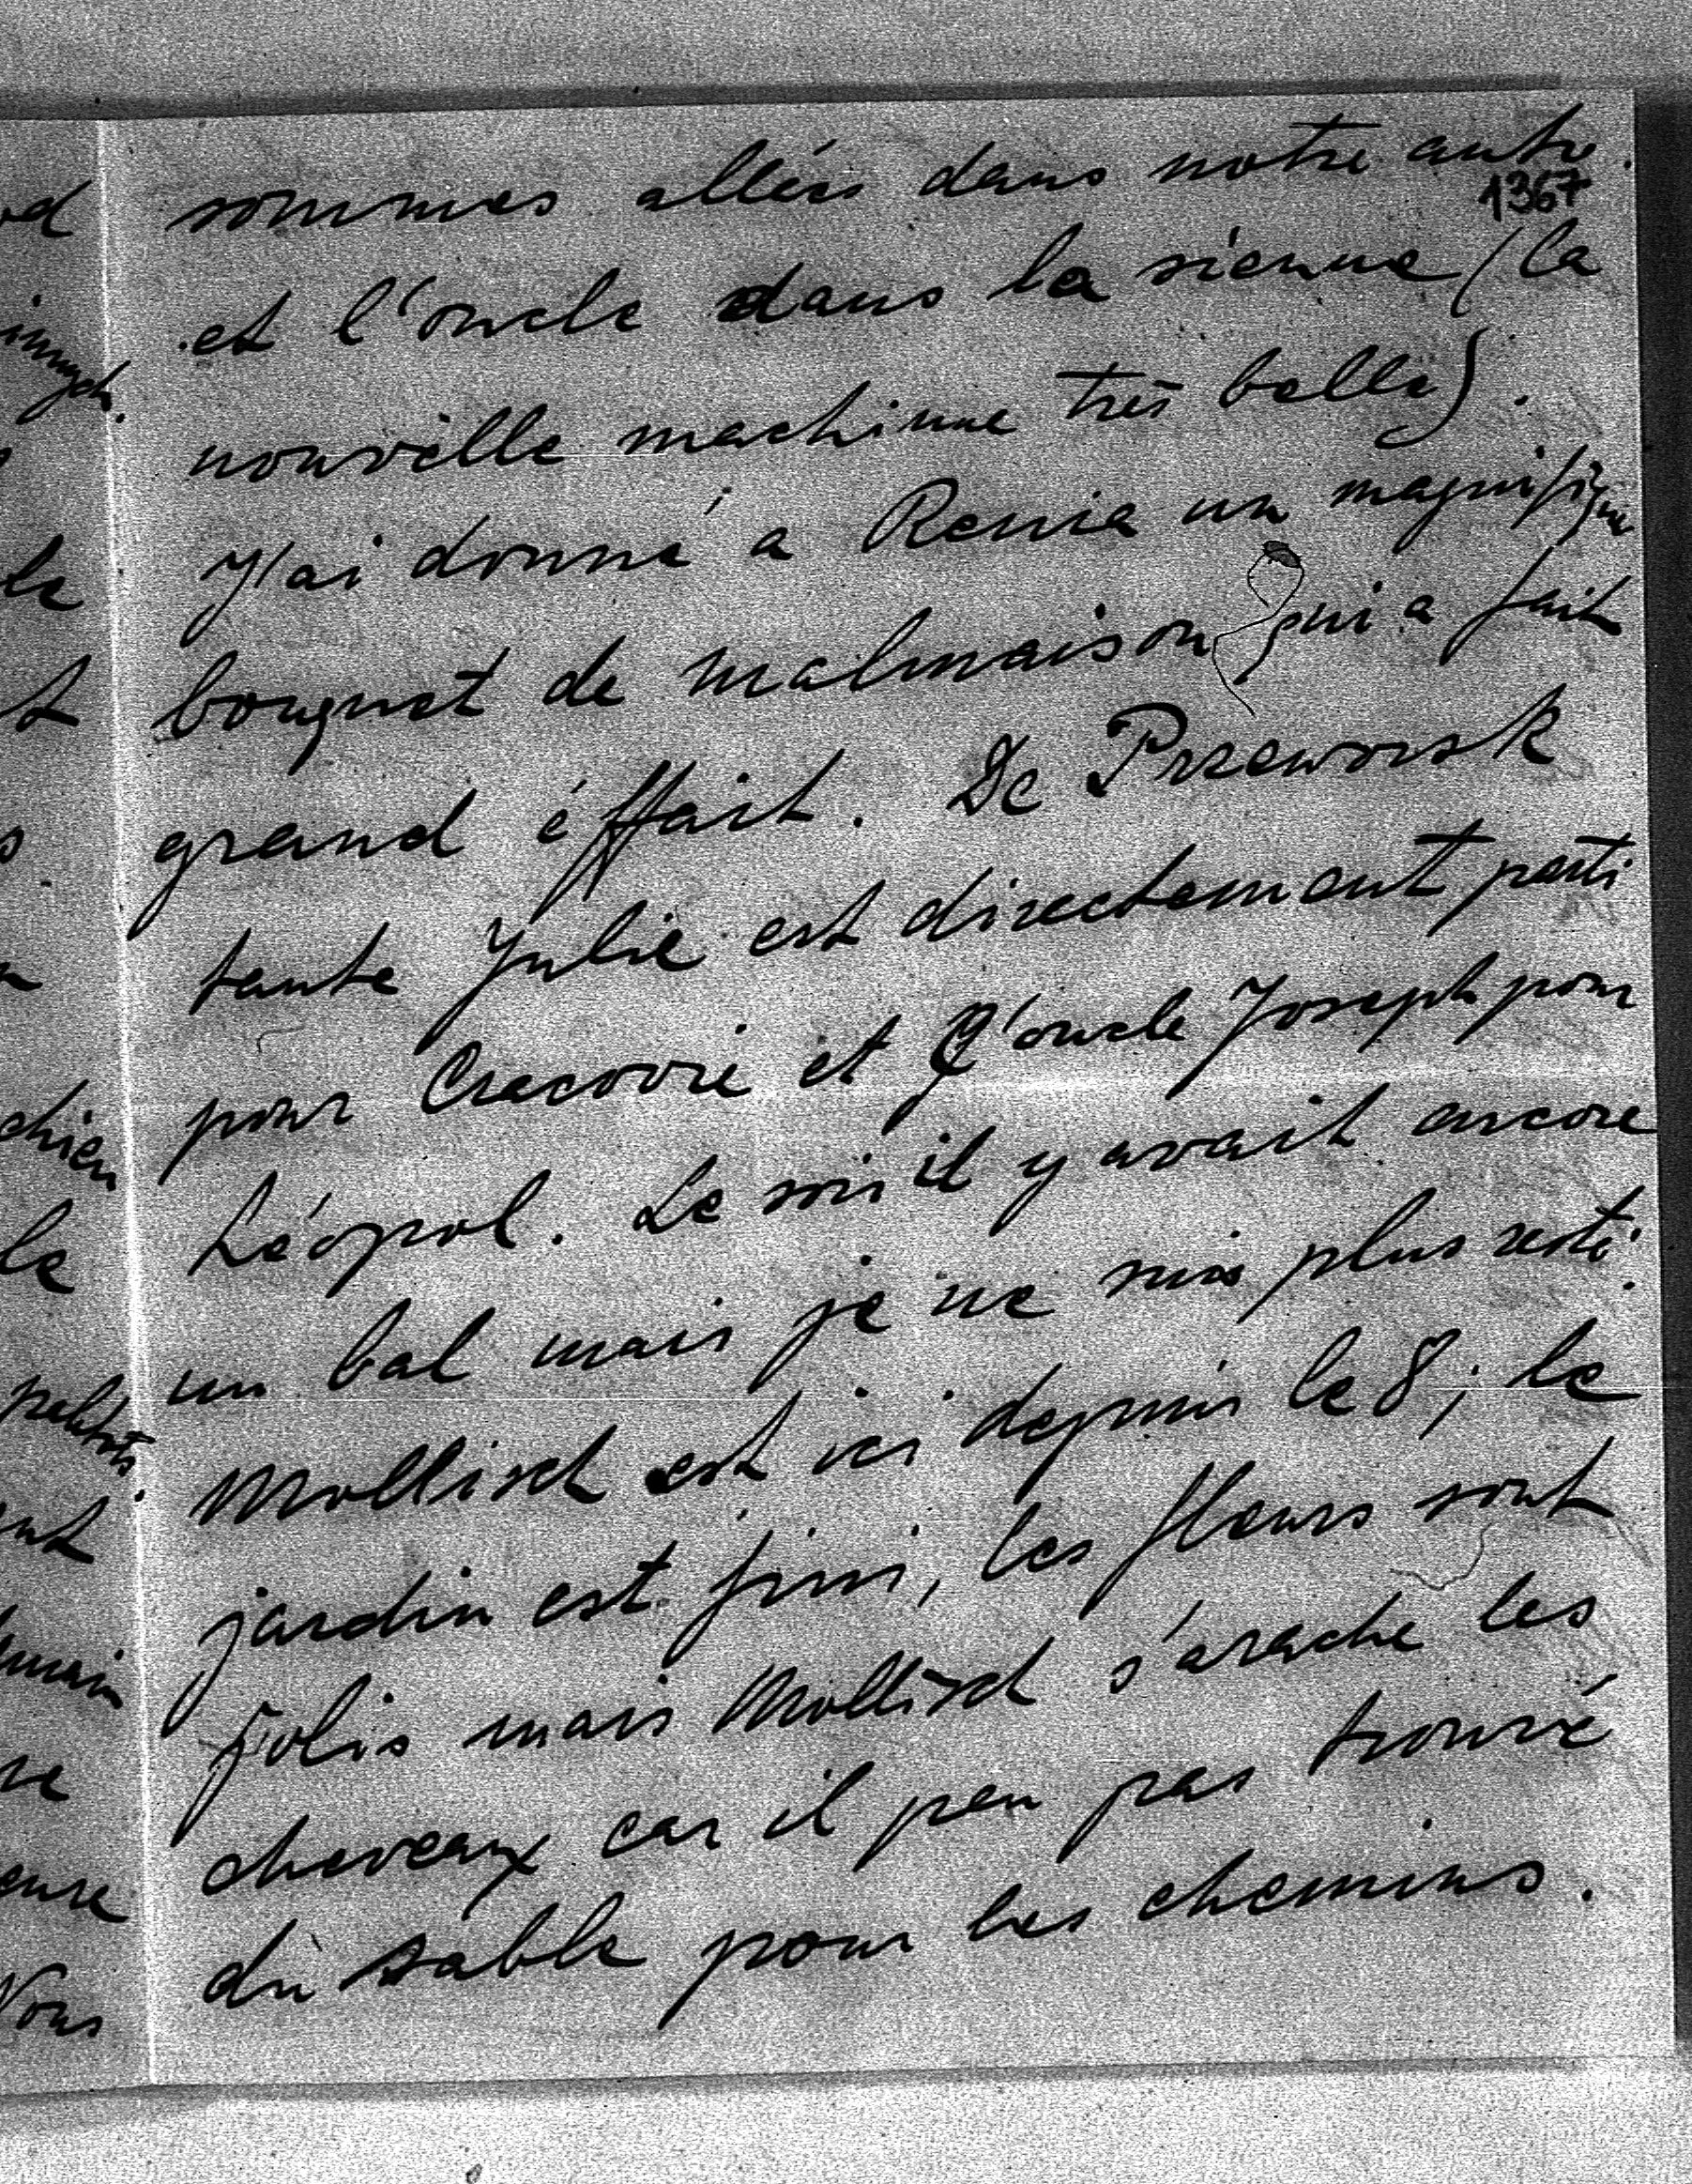 sommes allés dans notre auto.
1367
et l'oncle dans la sienne (la
nouvèlle machinne très belle).
J'ai donné a Renia un magnifique
bouquet de malmaison qui a fait
grand éffait. De Przeworsk
tante Julie est directement parti
pour Cracovie et l'oncle Joseph pour
Léopol. Le soir il y avait encore
un bal mais je ne suis plus resté.
Mollisch est ici depuis le 8; le
jardin est fini, les fleurs sont
jolis mais Mollisch s'arache les
cheveaux car il peu pas trouvé
du sable pour les chemins.
chien
le
Vous